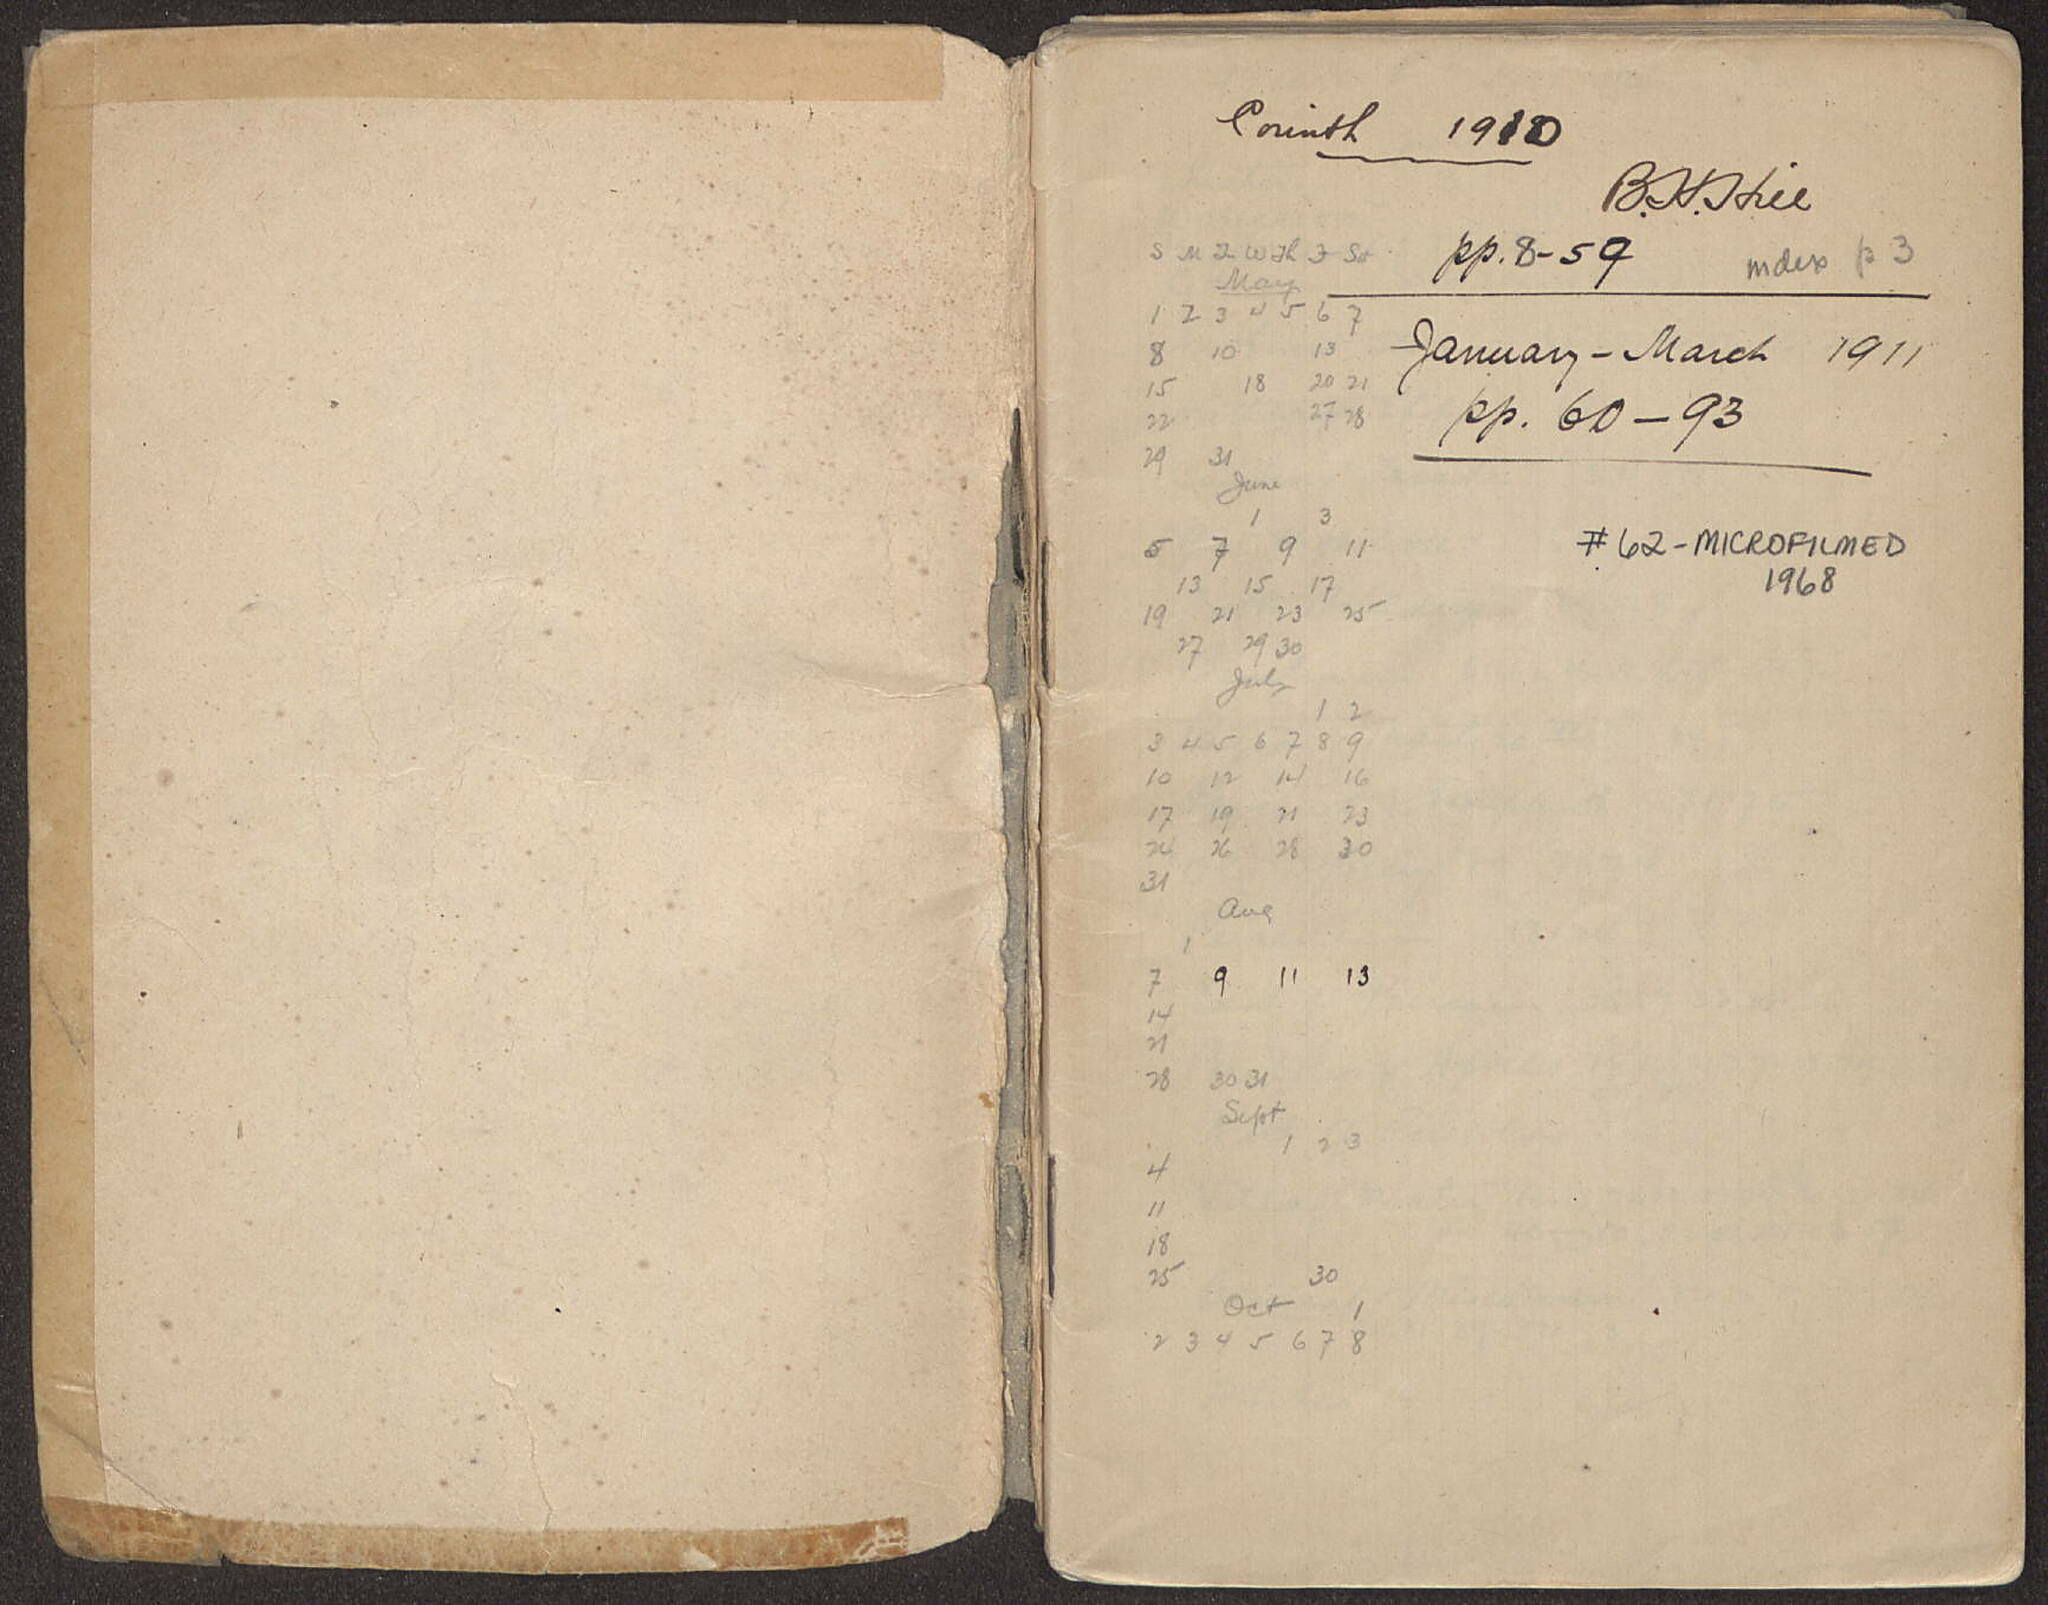 Corinth 1910
B.H.Hill
pp. 8-59 index p 3
January - March 1911
pp. 60-93
#62-MICROFILMED
1968
S M T W Th F Sat
May
1 2 3 4 5 6 7
8 10 13
15 18 20 21
22 27 28
29 31
June
1 3
5 7 9 11
13 15 17
19 21 23 25
27 29 30
July
1 2
3 4 5 6 7 8 9
10 12 14 16
17 19 21 23
24 26 28 30
31
Aug
1
7 9 11 13
14
21
28 30 31
Sept
1 2 3
4
11
18
25 30
Oct 1
2 3 4 5 6 7 8